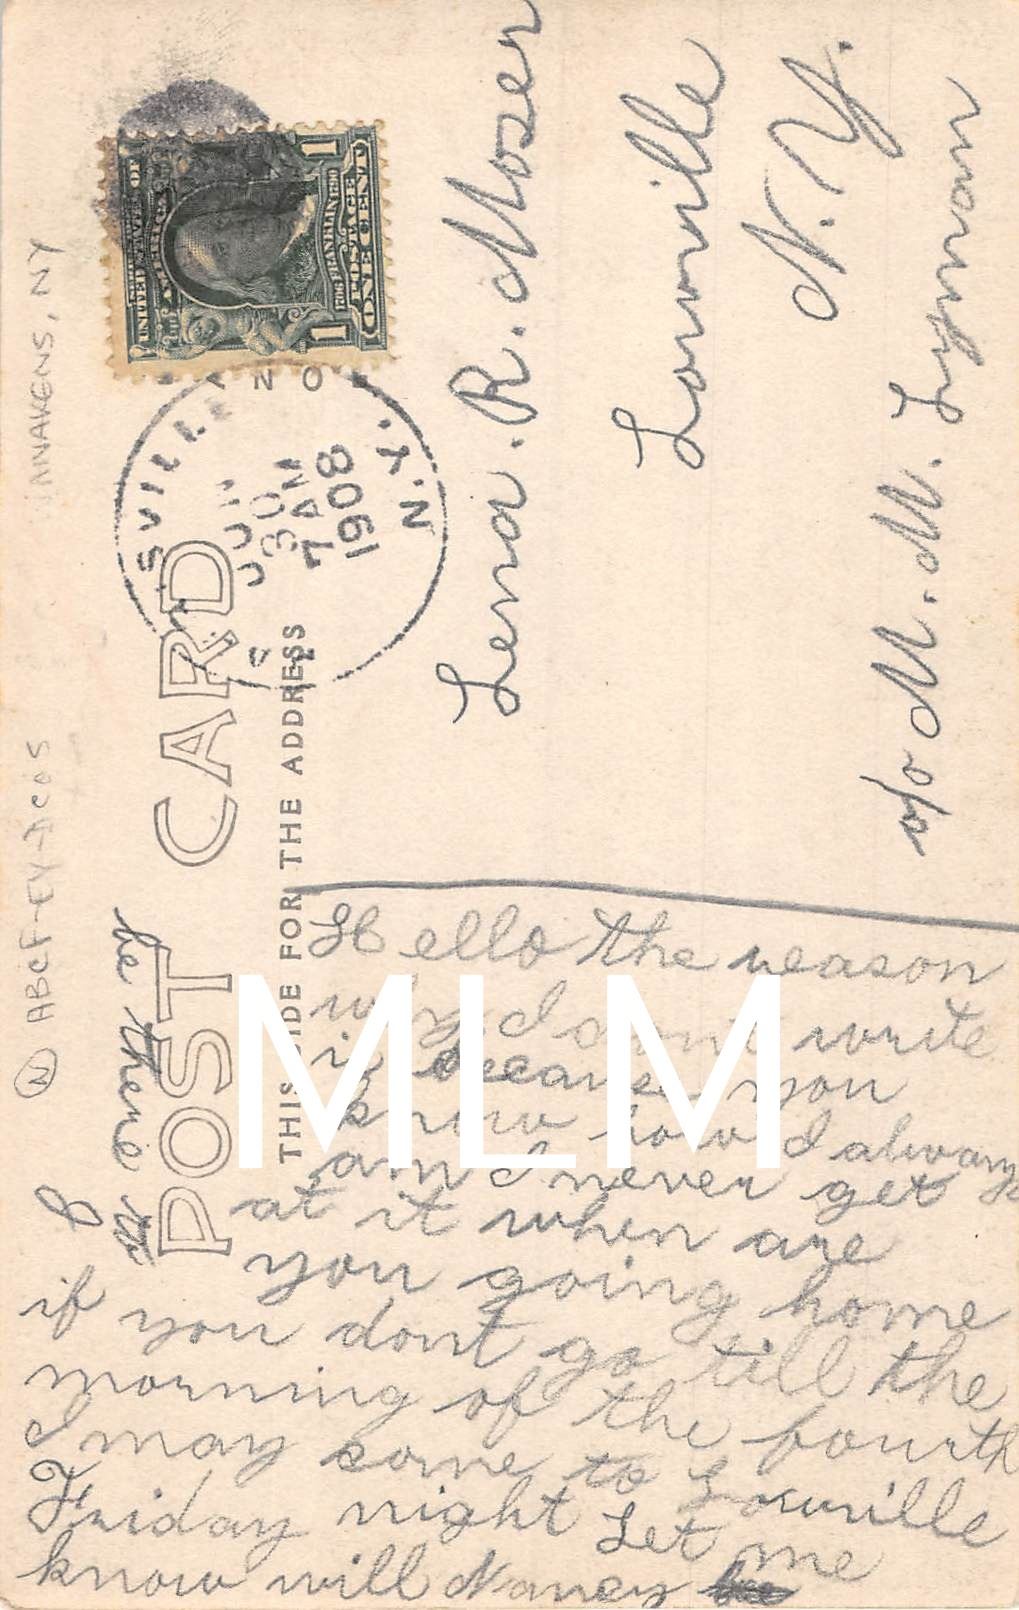 Hello the reason
why I dont write
is because you
know how I always
am I never get
at it when are
you going home
if you dont go till the
morning of the fourth
I may come to Lowville
Friday night Let me
know will Nancy
be there
I
POST CARD
THIS SIDE FOR THE ADDRESS
UNITED STATES OF
AMERICA
1706 FRANKLIN 1790
POSTAGE
ONE CENT
1 1
SVILLE
N.Y.
JUN
30
7 AM
1908
Lena. R. Moser
Lowville
N. Y.
c/o M. M. Lyman
N ABCF-EY-DC05
NY
MLM